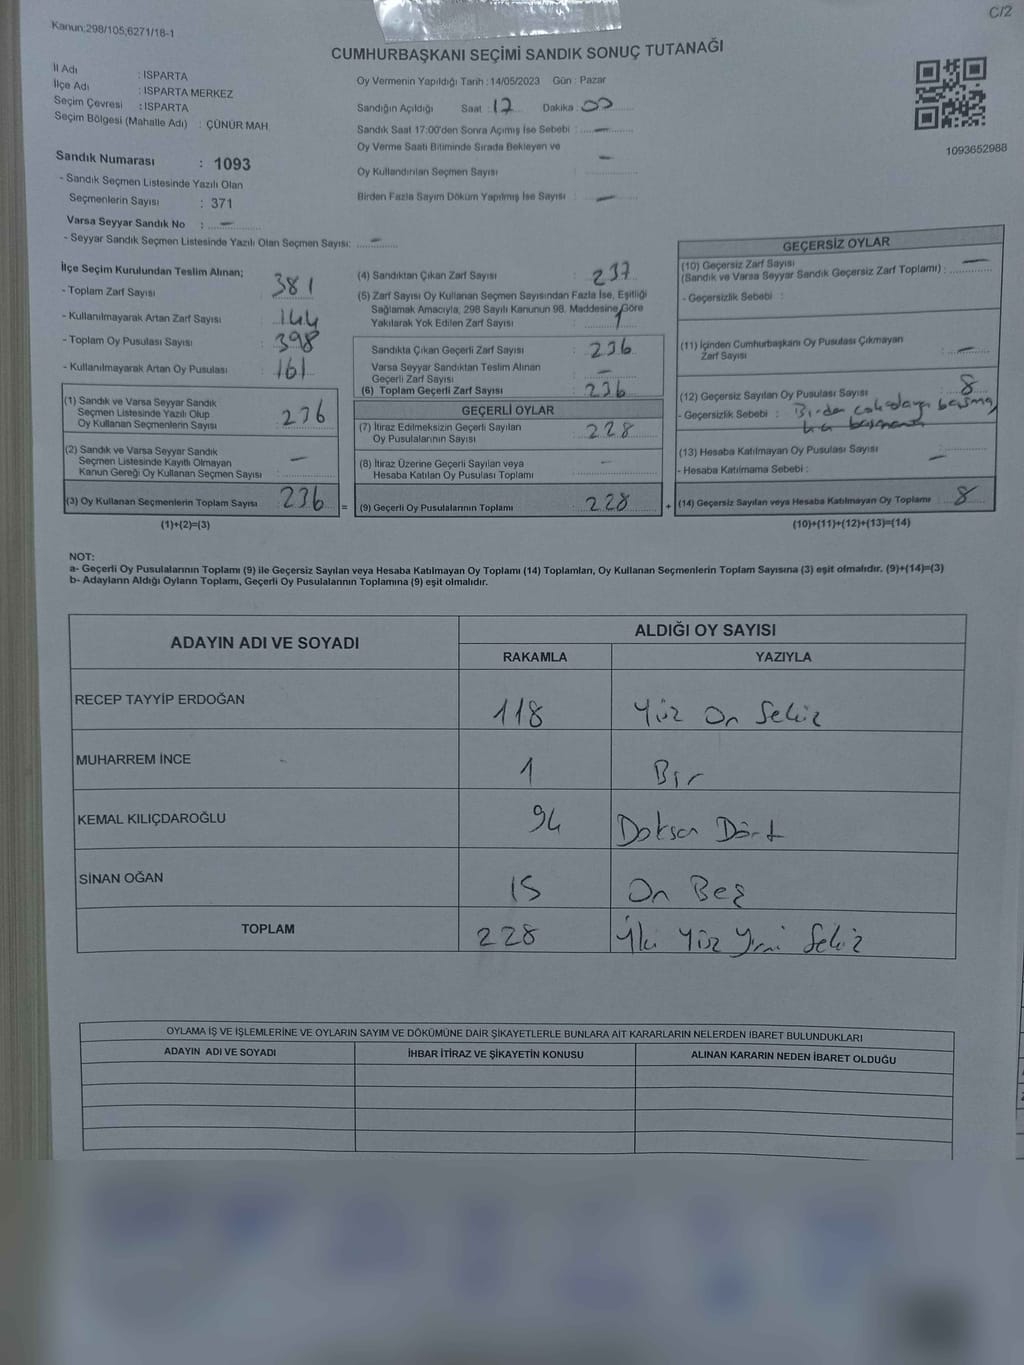 C/2
Kanun:298/105;6271/18-1
CUMHURBAŞKANI SEÇİMİ SANDIK SONUÇ TUTANAĞI
İl Adı : ISPARTA
İlçe Adı : ISPARTA MERKEZ
Seçim Çevresi : ISPARTA
Seçim Bölgesi (Mahalle Adı) : ÇÜNÜR MAH.
Sandık Numarası : 1093
- Sandık Seçmen Listesinde Yazılı Olan
Seçmenlerin Sayısı : 371
Varsa Seyyar Sandık No : —
- Seyyar Sandık Seçmen Listesinde Yazılı Olan Seçmen Sayısı: —
Oy Vermenin Yapıldığı Tarih : 14/05/2023 Gün : Pazar
Sandığın Açıldığı Saat : 17 Dakika : 00
Sandık Saat 17:00'den Sonra Açımış İse Sebebi : —
Oy Verme Saati Bitiminde Sırada Bekleyen ve
Oy Kullandırılan Seçmen Sayısı : —
Birden Fazla Sayım Döküm Yapılmış İse Sayısı : —
1093652988
İlçe Seçim Kurulundan Teslim Alınan;
- Toplam Zarf Sayısı : 381
- Kullanılmayarak Artan Zarf Sayısı : 144
- Toplam Oy Pusulası Sayısı : 398
- Kullanılmayarak Artan Oy Pusulası : 161
(1) Sandık ve Varsa Seyyar Sandık
Seçmen Listesinde Yazılı Olup
Oy Kullanan Seçmenlerin Sayısı : 236
(2) Sandık ve Varsa Seyyar Sandık
Seçmen Listesinde Kayıtlı Olmayan
Kanun Gereği Oy Kullanan Seçmen Sayısı : —
(3) Oy Kullanan Seçmenlerin Toplam Sayısı : 236
(1)+(2)=(3)
(4) Sandıktan Çıkan Zarf Sayısı : 237
(5) Zarf Sayısı Oy Kullanan Seçmen Sayısından Fazla İse, Eşitliği
Sağlamak Amacıyla, 298 Sayılı Kanunun 98. Maddesine Göre
Yakılarak Yok Edilen Zarf Sayısı : 1
Sandıkta Çıkan Geçerli Zarf Sayısı : 236
Varsa Seyyar Sandıktan Teslim Alınan
Geçerli Zarf Sayısı : —
(6) Toplam Geçerli Zarf Sayısı : 236
GEÇERLİ OYLAR
(7) İtiraz Edilmeksizin Geçerli Sayılan
Oy Pusulalarının Sayısı : 228
(8) İtiraz Üzerine Geçerli Sayılan veya
Hesaba Katılan Oy Pusulası Toplamı : —
= (9) Geçerli Oy Pusulalarının Toplamı : 228
GEÇERSİZ OYLAR
(10) Geçersiz Zarf Sayısı
(Sandık ve Varsa Seyyar Sandık Geçersiz Zarf Toplamı) : —
- Geçersizlik Sebebi :
(11) İçinden Cumhurbaşkanı Oy Pusulası Çıkmayan
Zarf Sayısı : —
(12) Geçersiz Sayılan Oy Pusulası Sayısı : 8
- Geçersizlik Sebebi : Birden çok adaya basma,
(13) Hesaba Katılmayan Oy Pusulası Sayısı : —
- Hesaba Katılmama Sebebi :
+ (14) Geçersiz Sayılan veya Hesaba Katılmayan Oy Toplamı : 8
(10)+(11)+(12)+(13)=(14)
NOT:
a- Geçerli Oy Pusulalarının Toplamı (9) ile Geçersiz Sayılan veya Hesaba Katılmayan Oy Toplamı (14) Toplamları, Oy Kullanan Seçmenlerin Toplam Sayısına (3) eşit olmalıdır. (9)+(14)=(3)
b- Adayların Aldığı Oyların Toplamı, Geçerli Oy Pusulalarının Toplamına (9) eşit olmalıdır.
ADAYIN ADI VE SOYADI ALDIĞI OY SAYISI
RAKAMLA YAZIYLA
RECEP TAYYİP ERDOĞAN 118 Yüz On Sekiz
MUHARREM İNCE 1 Bir
KEMAL KILIÇDAROĞLU 94 Doksan Dört
SİNAN OĞAN 15 On Beş
TOPLAM 228 İki Yüz Yirmi Sekiz
OYLAMA İŞ VE İŞLEMLERİNE VE OYLARIN SAYIM VE DÖKÜMÜNE DAİR ŞİKAYETLERLE BUNLARA AİT KARARLARIN NELERDEN İBARET BULUNDUKLARI
ADAYIN ADI VE SOYADI İHBAR İTİRAZ VE ŞİKAYETİN KONUSU ALINAN KARARIN NEDEN İBARET OLDUĞU